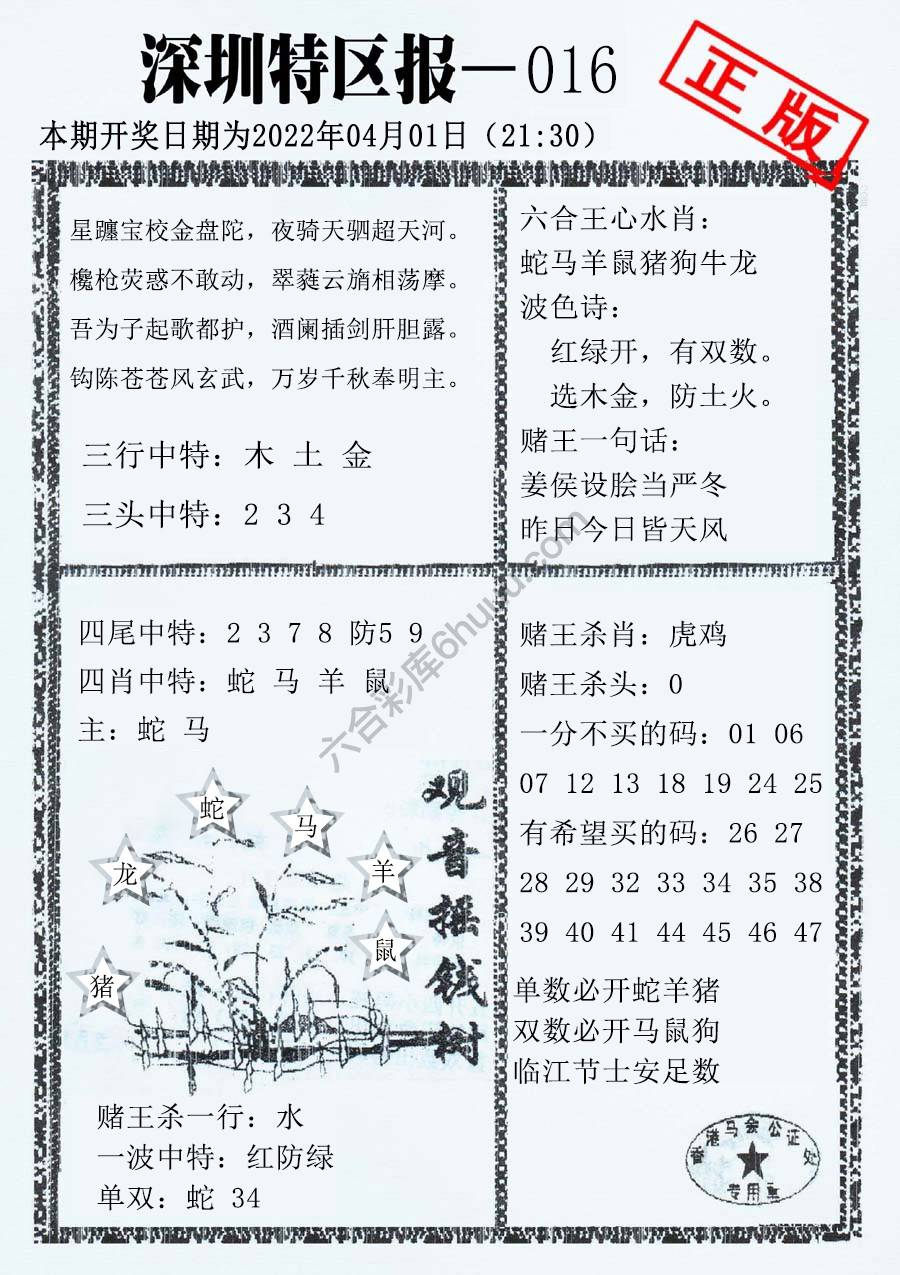 深圳特区报—016
正版
本期开奖日期为2022年04月01日（21:30）
星躔宝校金盘陀，夜骑天驷超天河。
欃枪荧惑不敢动，翠蕤云旓相荡摩。
吾为子起歌都护，酒阑插剑肝胆露。
钩陈苍苍风玄武，万岁千秋奉明主。
三行中特：木 土 金
三头中特：2 3 4
六合王心水肖：
蛇马羊鼠猪狗牛龙
波色诗：
红绿开，有双数。
选木金，防土火。
赌王一句话：
姜侯设脍当严冬
昨日今日皆天风
四尾中特：2 3 7 8 防5 9
四肖中特：蛇 马 羊 鼠
主：蛇 马
蛇
马
龙
羊
鼠
猪
观音摇钱树
赌王杀一行：水
一波中特：红防绿
单双：蛇 34
赌王杀肖：虎鸡
赌王杀头：0
一分不买的码：01 06
07 12 13 18 19 24 25
有希望买的码：26 27
28 29 32 33 34 35 38
39 40 41 44 45 46 47
单数必开蛇羊猪
双数必开马鼠狗
临江节士安足数
香港马会公证处
专用章
六合彩库6huuu.com